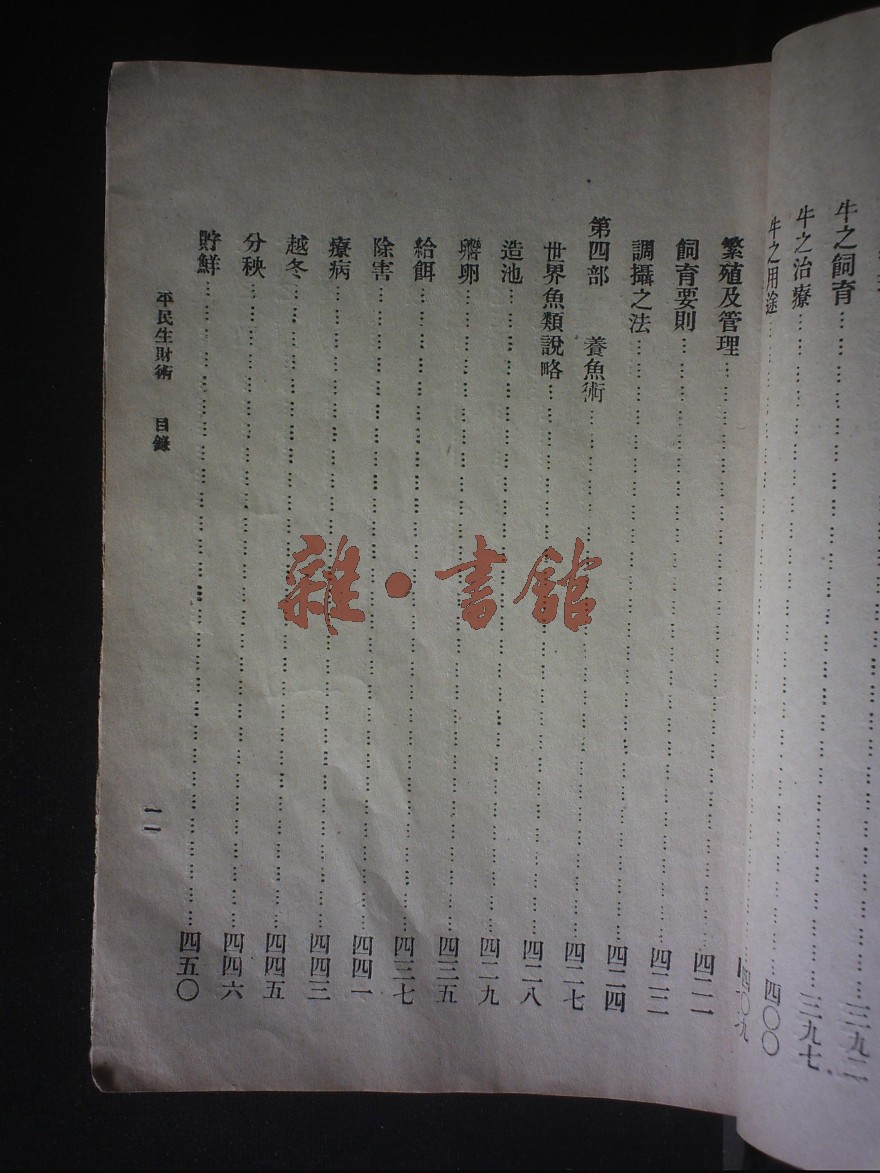 牛之飼育………三九二
牛之治療………三九七
牛之用途………四〇〇
四〇九
繁殖及管理………四二一
飼育要則………四二二
調攝之法………四二四
第四部　養魚術………四二七
世界魚類說略………四二八
造池………四二九
孵卵………四三五
給餌………四三七
除害………四四一
療病………四四三
越冬………四四五
分秧………四四六
貯鮮………四五〇
平民生財術　目錄
一一
雜·書館